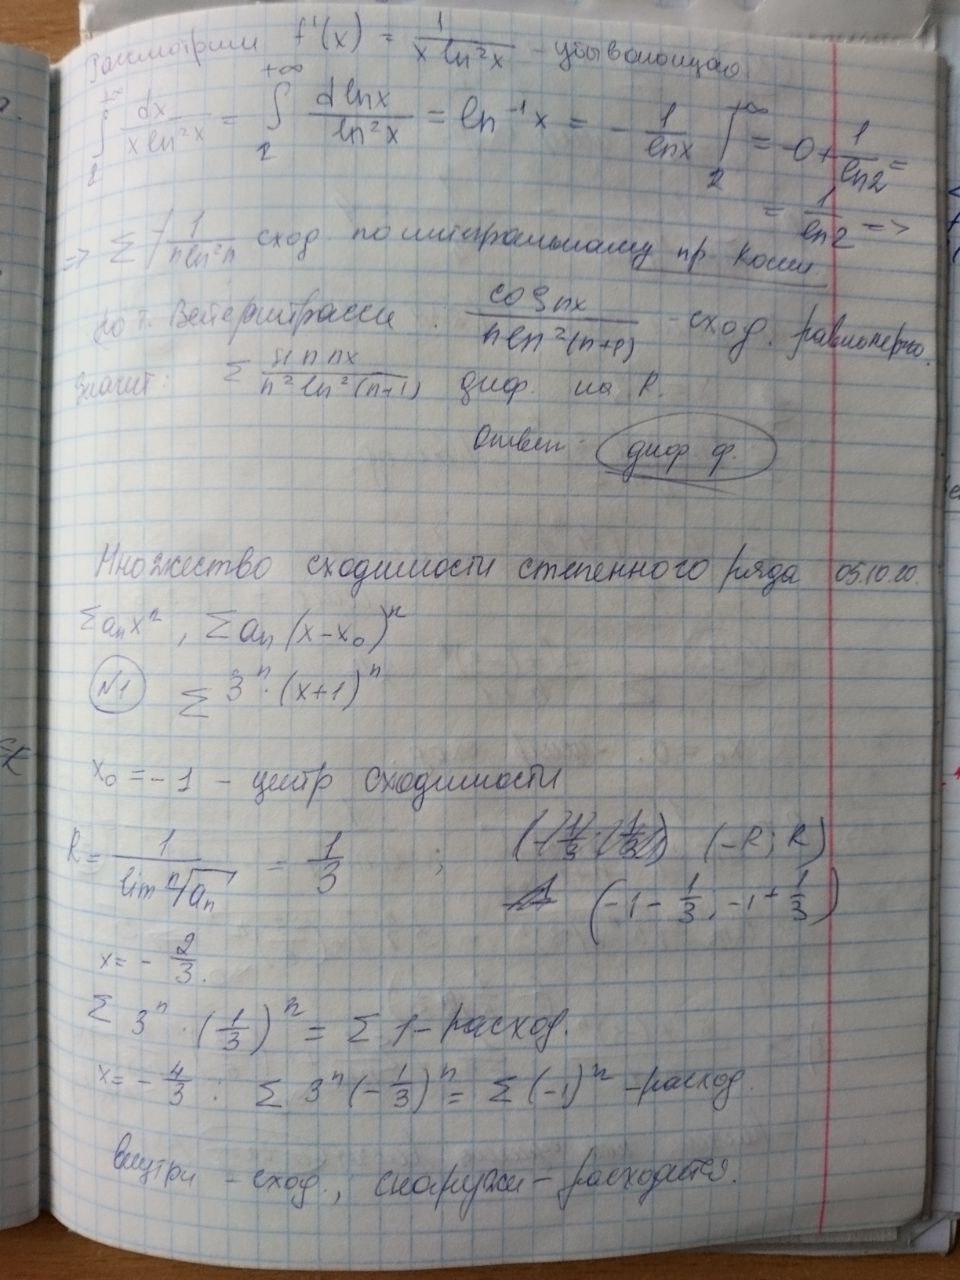 Рассмотрим f'(x) = 1/(x ln²x) - убывающая
∫₂^{+∞} dx/(x ln²x) = ∫₂^{+∞} d lnx/(ln²x) = ln⁻¹x = - 1/(lnx) |₂^{+∞} = -0 + 1/(ln2) =
= 1/(ln2) =>
=> Σ 1/(n ln²n) сход по интегральному пр Коши.
по т. Вейерштрасса : cos nx/(n ln²(n+1)) - сход. равномерно.
Значит: Σ sin nx/(n² ln²(n+1)) диф. на R.
Ответ: диф ф.
Множество сходимости степенного ряда 05.10.20.
Σaₙxⁿ, Σaₙ(x-x₀)ⁿ
N1 Σ 3ⁿ·(x+1)ⁿ
x₀ = -1 - центр сходимости
R = 1/(lim ⁿ√aₙ) = 1/3 ; (-R; R)
(-1 - 1/3, -1 + 1/3)
x = - 2/3.
Σ 3ⁿ · (1/3)ⁿ = Σ 1 - расход.
x = - 4/3 : Σ 3ⁿ(-1/3)ⁿ = Σ (-1)ⁿ - расход.
внутри - сход., снаружи - расходится.